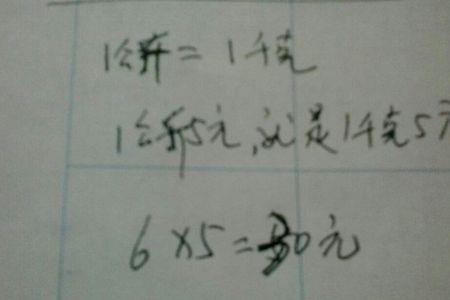 1公斤=1千克
1公斤5元,就是1千克5元
6×5=30元